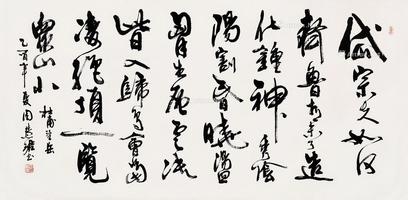 岱宗夫如何
齊魯青未了造
化鍾神秀陰
陽割昏曉盪
胸生層雲決
眥入歸鳥會當
凌絕頂一覽
眾山小 杜甫望岳
乙酉年夏周書